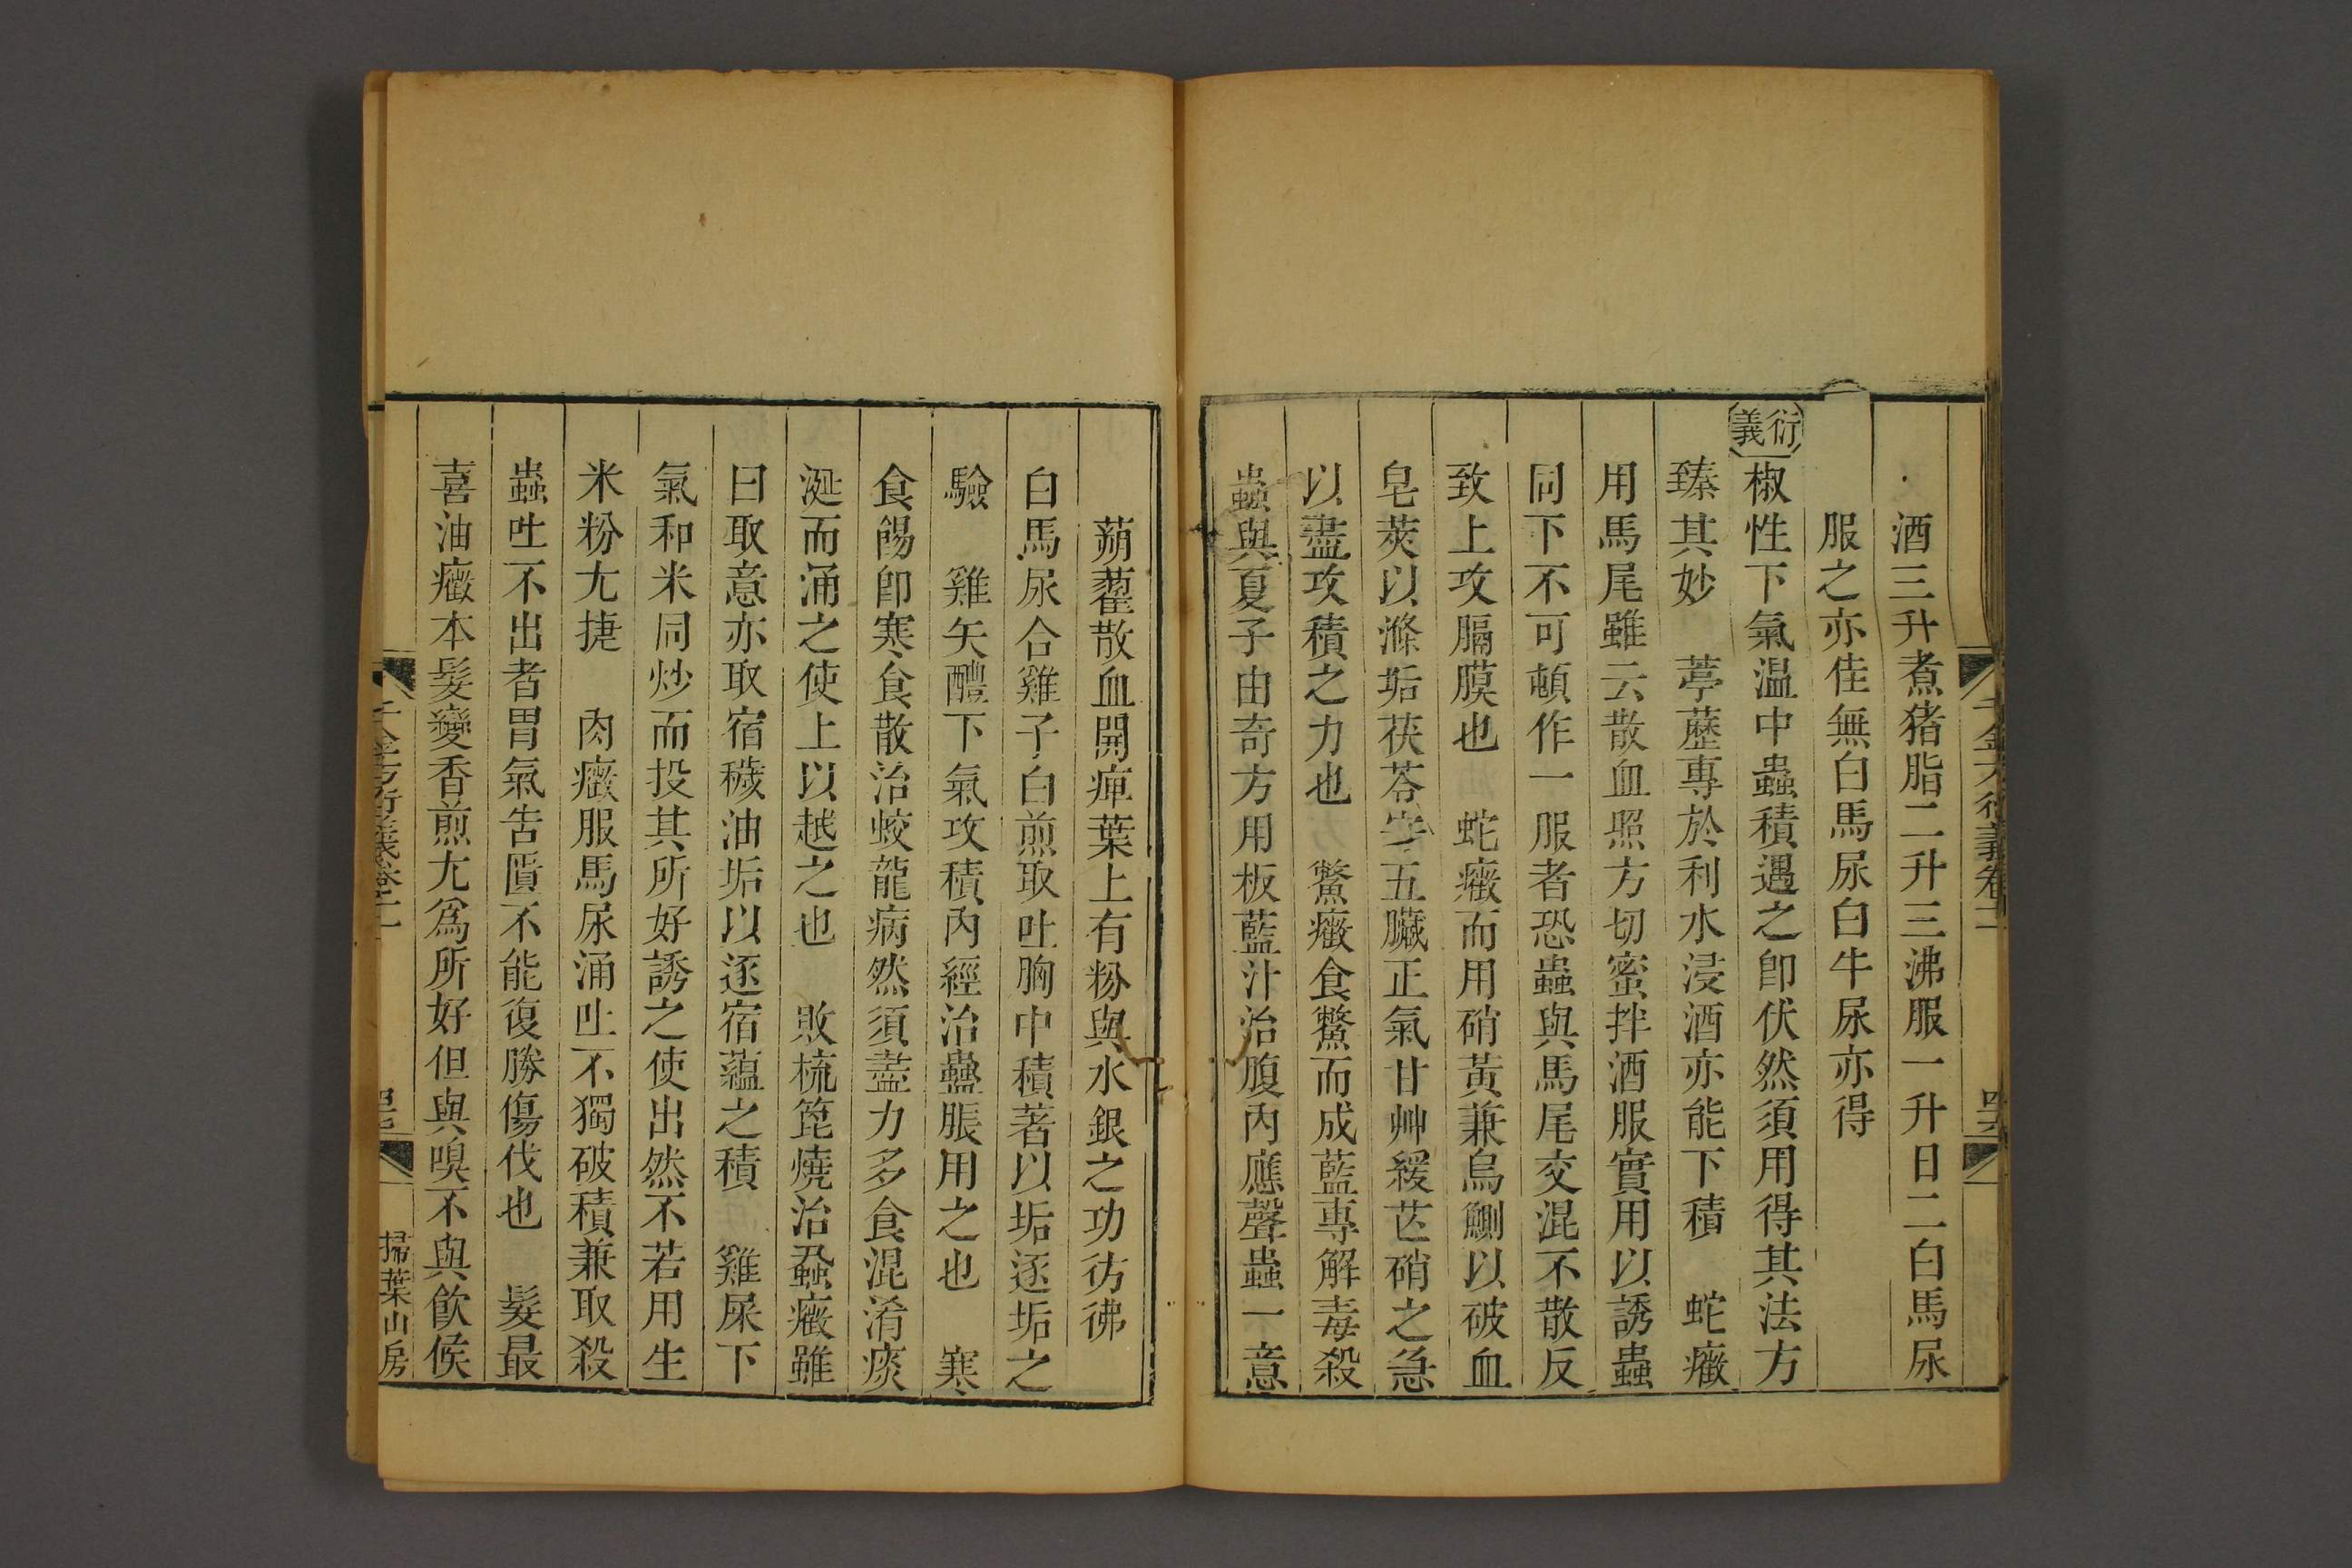 酒三升煮猪脂二升三沸服一升日二白馬尿
服之亦佳無白馬尿白牛尿亦得
衍義
椒性下氣温中蟲積遇之卽伏然須用得其法方
臻其妙　葶藶專於利水浸酒亦能下積　蛇癥
用馬尾雖云散血照方切蜜拌酒服實用以誘蟲
同下不可頓作一服者恐蟲與馬尾交混不散反
致上攻膈膜也　蛇癥而用硝黃兼烏鰂以破血
皂莢以滌垢茯苓安五臟正氣甘艸緩芒硝之急
以盡攻積之力也　鱉癥食鱉而成藍專解毒殺
蟲與夏子由奇方用板藍汁治腹內應聲蟲一意
千金方衍義卷十一
蒴藋散血開痺葉上有粉與水銀之功彷彿
白馬尿合雞子白煎取吐胸中積著以垢逐垢之
驗　雞矢醴下氣攻積內經治蠱脹用之也　寒
食餳卽寒食散治蛟龍病然須盡力多食混淆痰
涎而涌之使上以越之也　敗梳篦燒治蝨癥雖
曰取意亦取宿穢油垢以逐宿蘊之積　雞屎下
氣和米同炒而投其所好誘之使出然不若用生
米粉尤捷　肉癥服馬尿涌吐不獨破積兼取殺
蟲吐不出者胃氣告匱不能復勝傷伐也　髮最
喜油癥本髮變香煎尤爲所好但與嗅不與飮候
千金方衍義卷十一
掃葉山房